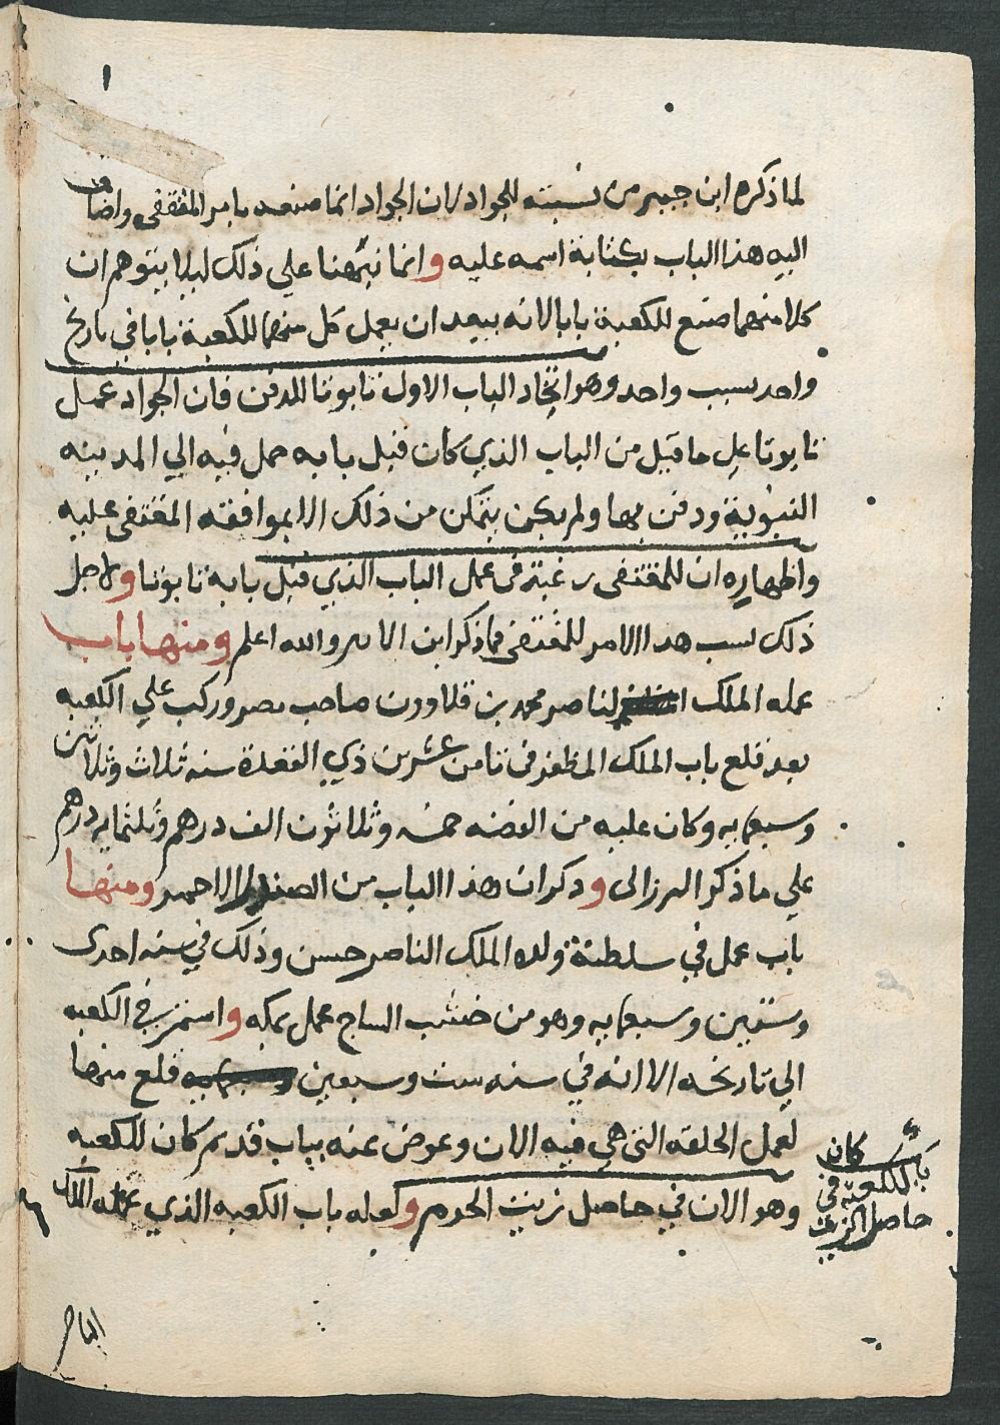 ١
لما ذكره ابن جبير من نسبته للجواد لان الجواد انما صنعه بامر المقتفى واضاف
اليه هذا الباب بكتابة اسمه عليه وانما نبهنا علي ذلك ليلا يتوهم ان
كلا منهما صنع للكعبة بابا لانه يبعد ان يعمل كل منهما للكعبة بابا في تاريخ
واحد بسبب واحد وهو اتخاد الباب الاول تابوتا للدفن فان الجواد عمل
تابوتا علي ما قيل من الباب الذي كان قبل بابه حمل فيه الي المدينه
النبوية ودفن بها ولم يكن يتمكن من ذلك الا بموافقه المقتفى عليه
واظهاره ان للمقتفى رغبة فى عمل الباب الذي قبل بابه تابوتا ولاجل
ذلك نسب هذا الامر للمقتفى فيما ذكر ابن الاثير والله اعلم ومنها باب
عمله الملك الناصر محمد بن قلاوون صاحب مصر وركب علي الكعبه
بعد قلع باب الملك المظفر فى ثامن عشرين ذي القعدة سنه ثلاث وثلاثين
وسبعمايه وكان عليه من الفضه خمسه وثلاثون الف درهم وثلثمايه درهم
علي ما ذكر البرزالى وذكر ان هذا الباب من الاحمر ومنها
باب عمل في سلطنة ولده الملك الناصر حسن وذلك في سنه احدى
وستين وسبعمايه وهو من خشب الساج عمل بمكه واستمر في الكعبه
الي تاريخه الا انه في سنه ست وسبعين قلع منها
لعمل الحلقه التى هي فيه الان وعوض عنه بباب قديم كان للكعبه
وهو الان في حاصل زيت الحرم وكعله باب الكعبه الذي عمله الملك
كان
باب للكعبة في
حاصل الزيت
الناصر